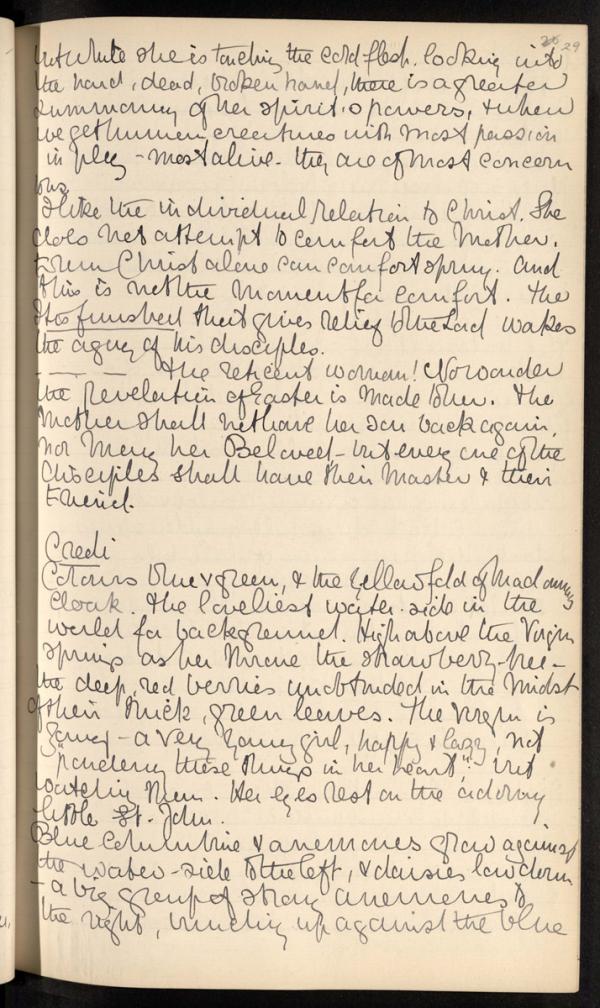 29
but while she is touching the cold flesh, looking into
the hard, dead, broken hand, there is a greater
summoning of her spirit's powers, & when
we get human creatures with most passion
in play - most alive - they are of most concern
to us.
I like the individual relation to Christ. She
does not attempt to comfort the Mother.
From Christ alone can comfort spring. And
this is not the moment for comfort. The
It is finished that gives relief to the Lord wakes
the agony of his disciples.
— — — The reticent woman! No wonder
the revelation of Easter is made to her. The
Mother shall not have her son back again,
nor Mary her Beloved - but every one of the
disciples shall have their Master & their
Friend.
Credi
Colours blue & green, & the yellow fold of Madonna's
cloak. The loveliest water-side in the
world for background. High above the Virgin
springs as her throne the strawberry-tree -
the deep, red berries unclouded in the midst
of their thick, green leaves. The Virgin is
young - a very young girl, happy & lazy, not
"pondering these things in her heart," but
watching them. Her eyes rest on the adoring
little St. John.
Blue Columbine & anemones grow against
the water-side to the left, & daisies low down
- a big group of strong anemones to
the right, bunching up against the blue